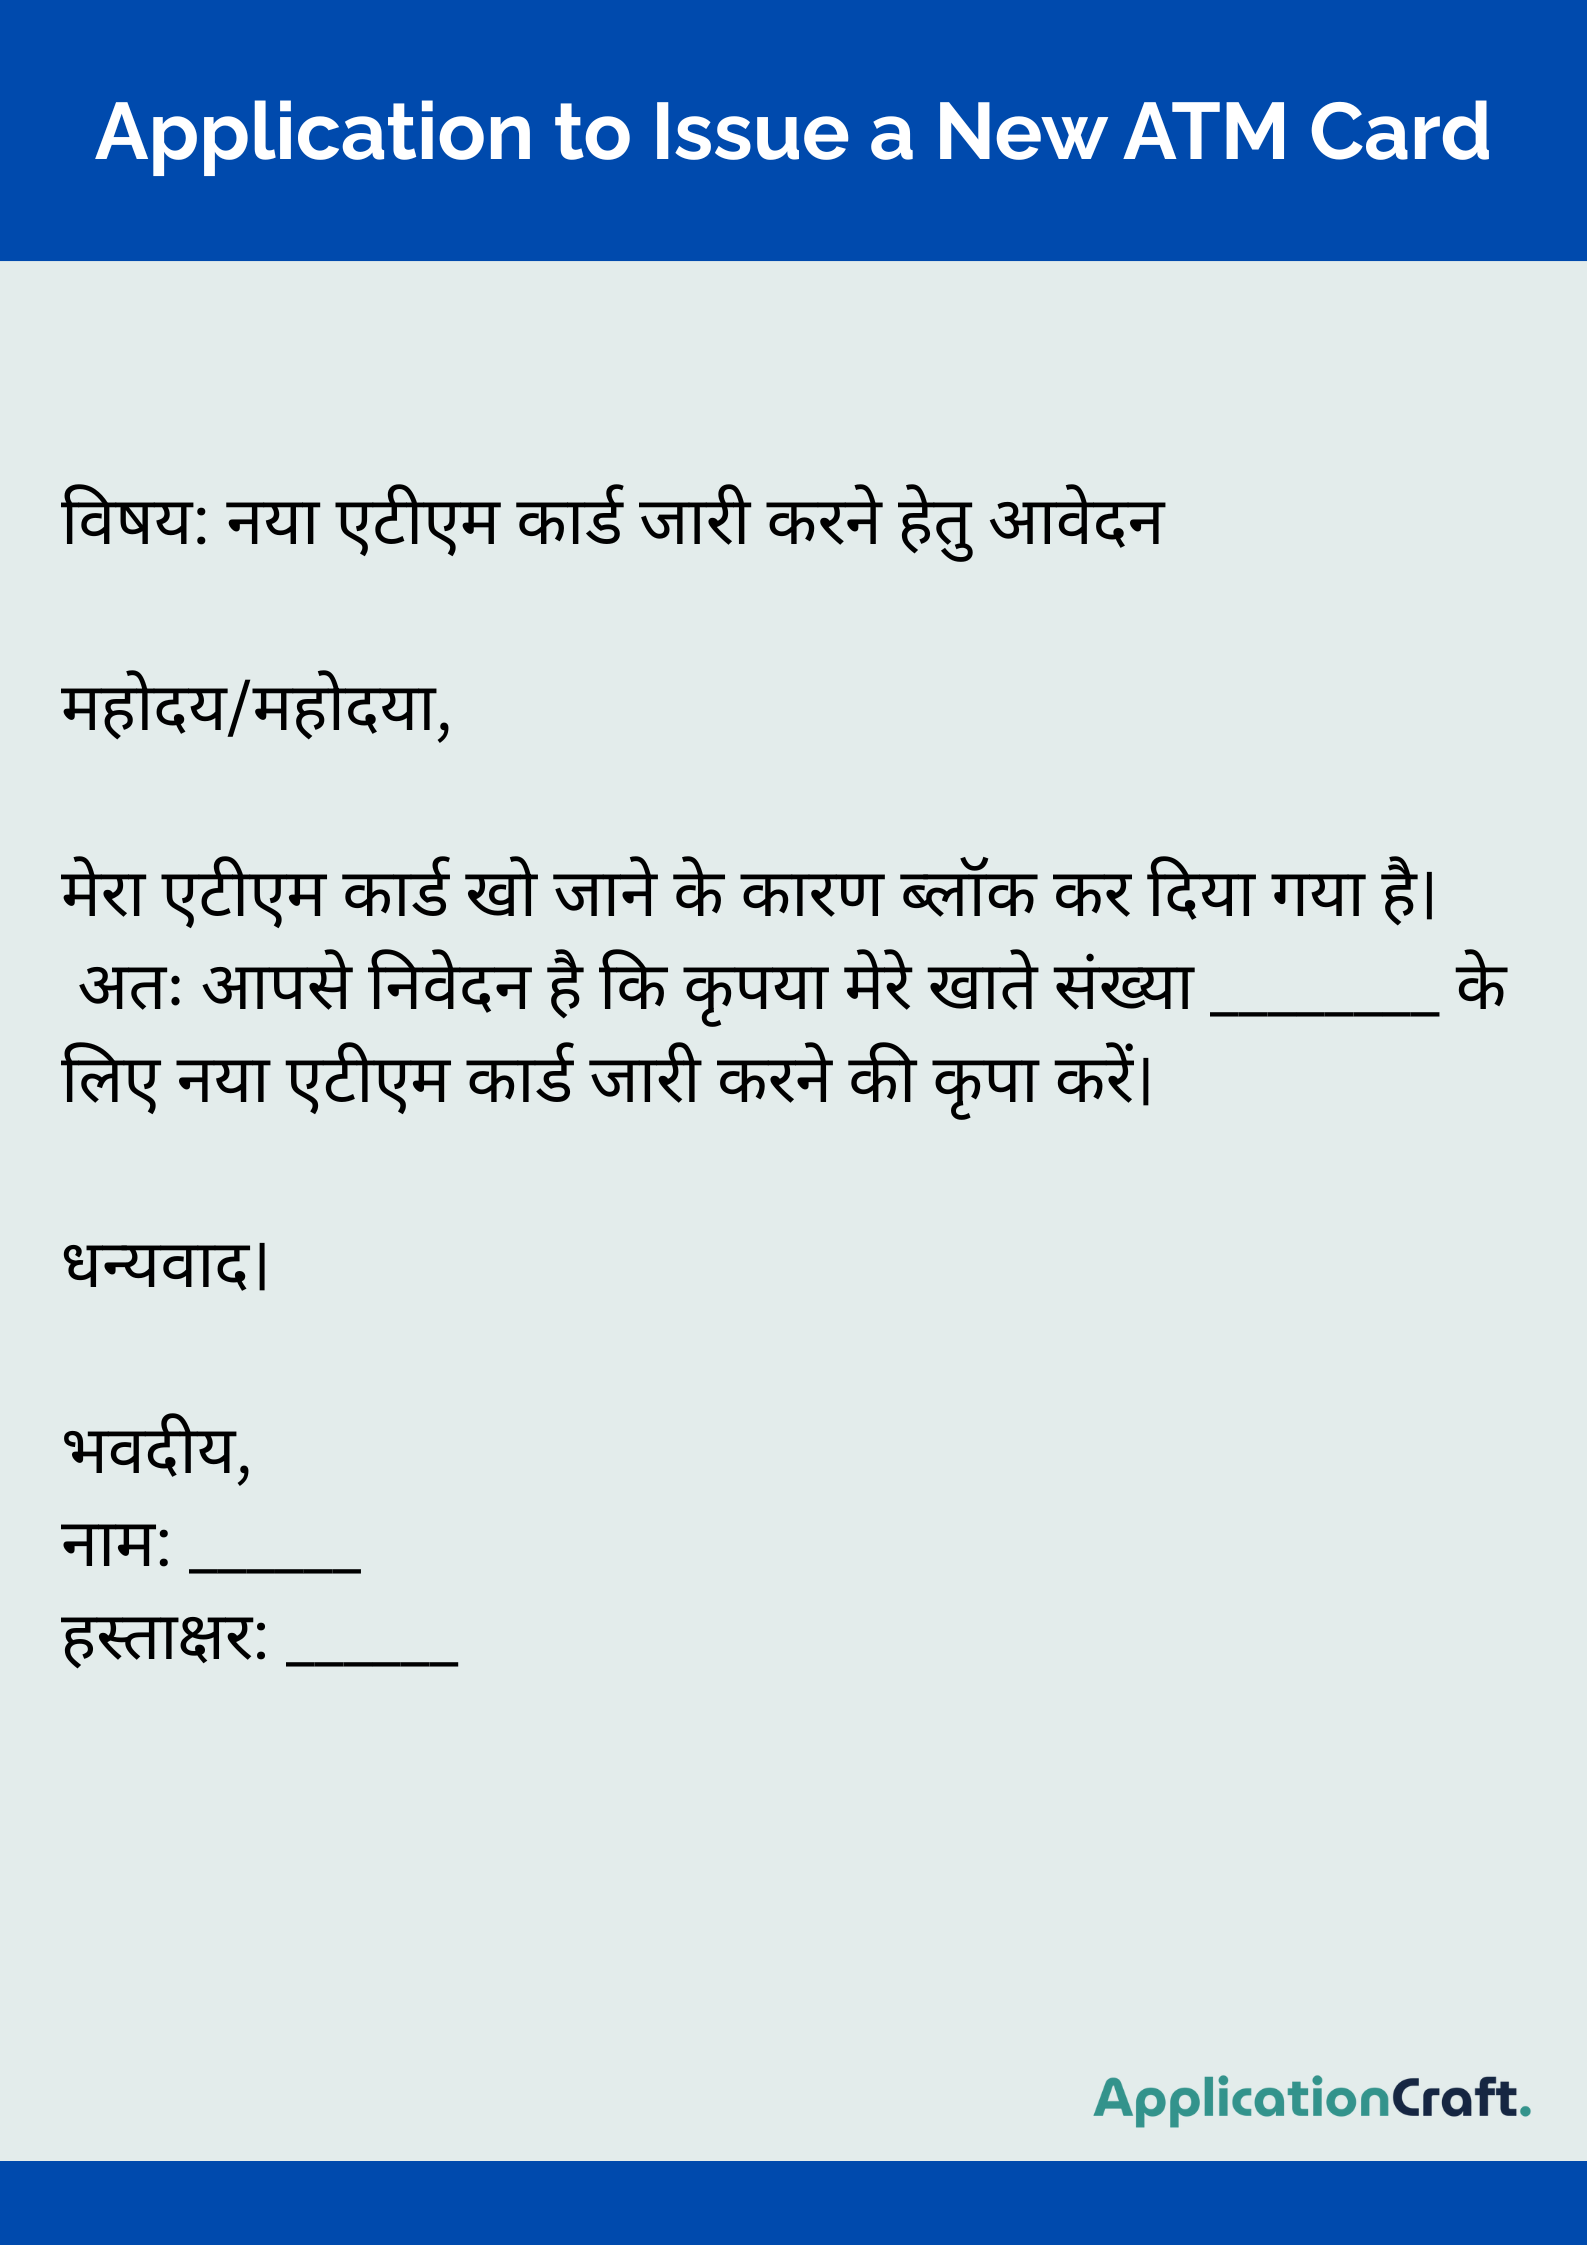 Application to Issue a New ATM Card
विषय: नया एटीएम कार्ड जारी करने हेतु आवेदन
महोदय/महोदया,
मेरा एटीएम कार्ड खो जाने के कारण ब्लॉक कर दिया गया है।
अतः आपसे निवेदन है कि कृपया मेरे खाते संख्या ________ के
लिए नया एटीएम कार्ड जारी करने की कृपा करें।
धन्यवाद।
भवदीय,
नाम: ______
हस्ताक्षर: ______
ApplicationCraft.